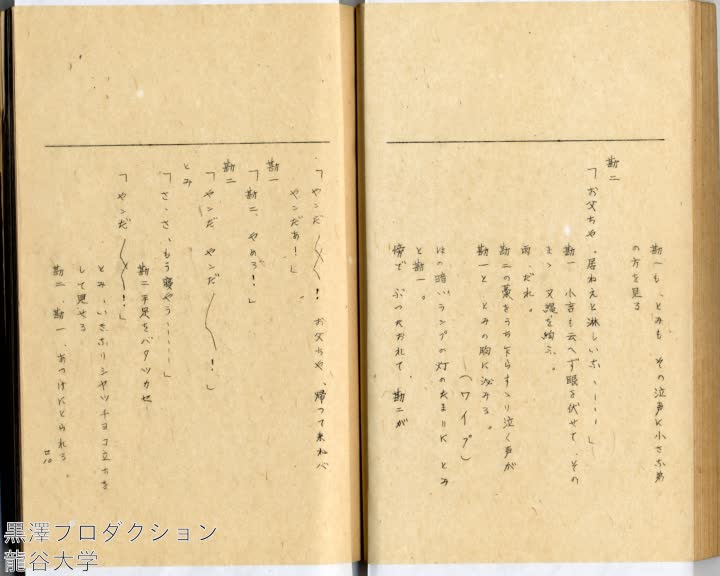 勘一も、とみも その泣声に小さな弟
の方を見る
勘二
「お父ちや、居ねえと淋しいな、・・・・」
勘一 小言も云へず眼を伏せて、その
まゝ 又縄を綯ふ。
雨だれ。
勘二の藁をうち乍らすゝり泣く声が
勘一と とみの胸に泌みる。
（ワイプ）
ほの暗いランプの灯のたまりに とみ
と勘一。
傍で ぶつたおれて 勘二が
「やンだ〱！ お父ちや、帰つて来ねべ
やンだあ！」
勘一
「勘二、やめろ！」
勘二
「やンだ やンだ〱！」
とみ
「さ、さ、もう寝やう・・・・・」
「やンだ〱！」
勘二手足をバタツカせ
とみ、いきなりシヤツチヨコ立ちを
して見せる
勘二、勘一、あつけにとられる
黒澤プロダクション
龍谷大学